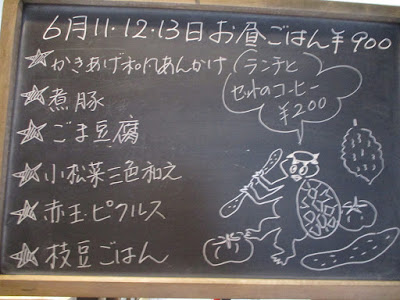 6月11・12・13日お昼ごはん¥900
かきあげ和風あんかけ
煮豚
ごま豆腐
小松菜三色和え
赤玉・ピクルス
枝豆ごはん
ランチと
セットのコーヒー
¥200